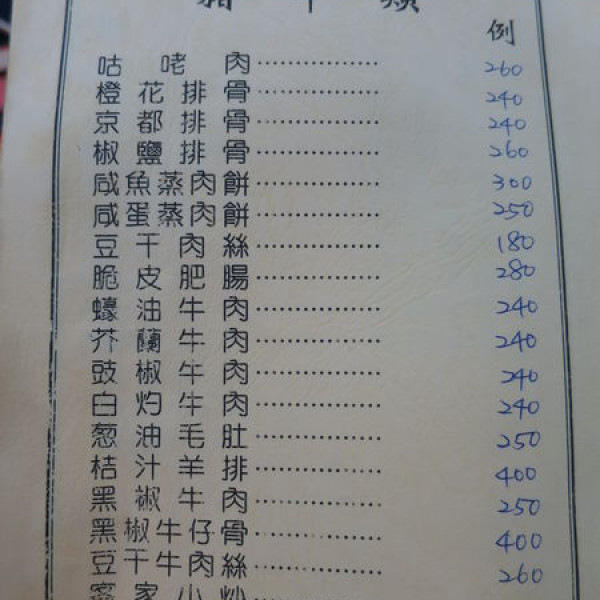 豬牛類
例
咕咾肉 260
橙花排骨 240
京都排骨 240
椒鹽排骨 260
咸魚蒸肉餅 300
咸蛋蒸肉餅 250
豆干肉絲 180
脆皮肥腸 280
蠔油牛肉 240
芥蘭牛肉 240
豉椒牛肉 240
白灼牛肉 240
葱油毛肚 250
桔汁羊排 400
黑椒牛肉 250
黑椒牛仔骨 400
豆干牛肉絲 260
家小炒